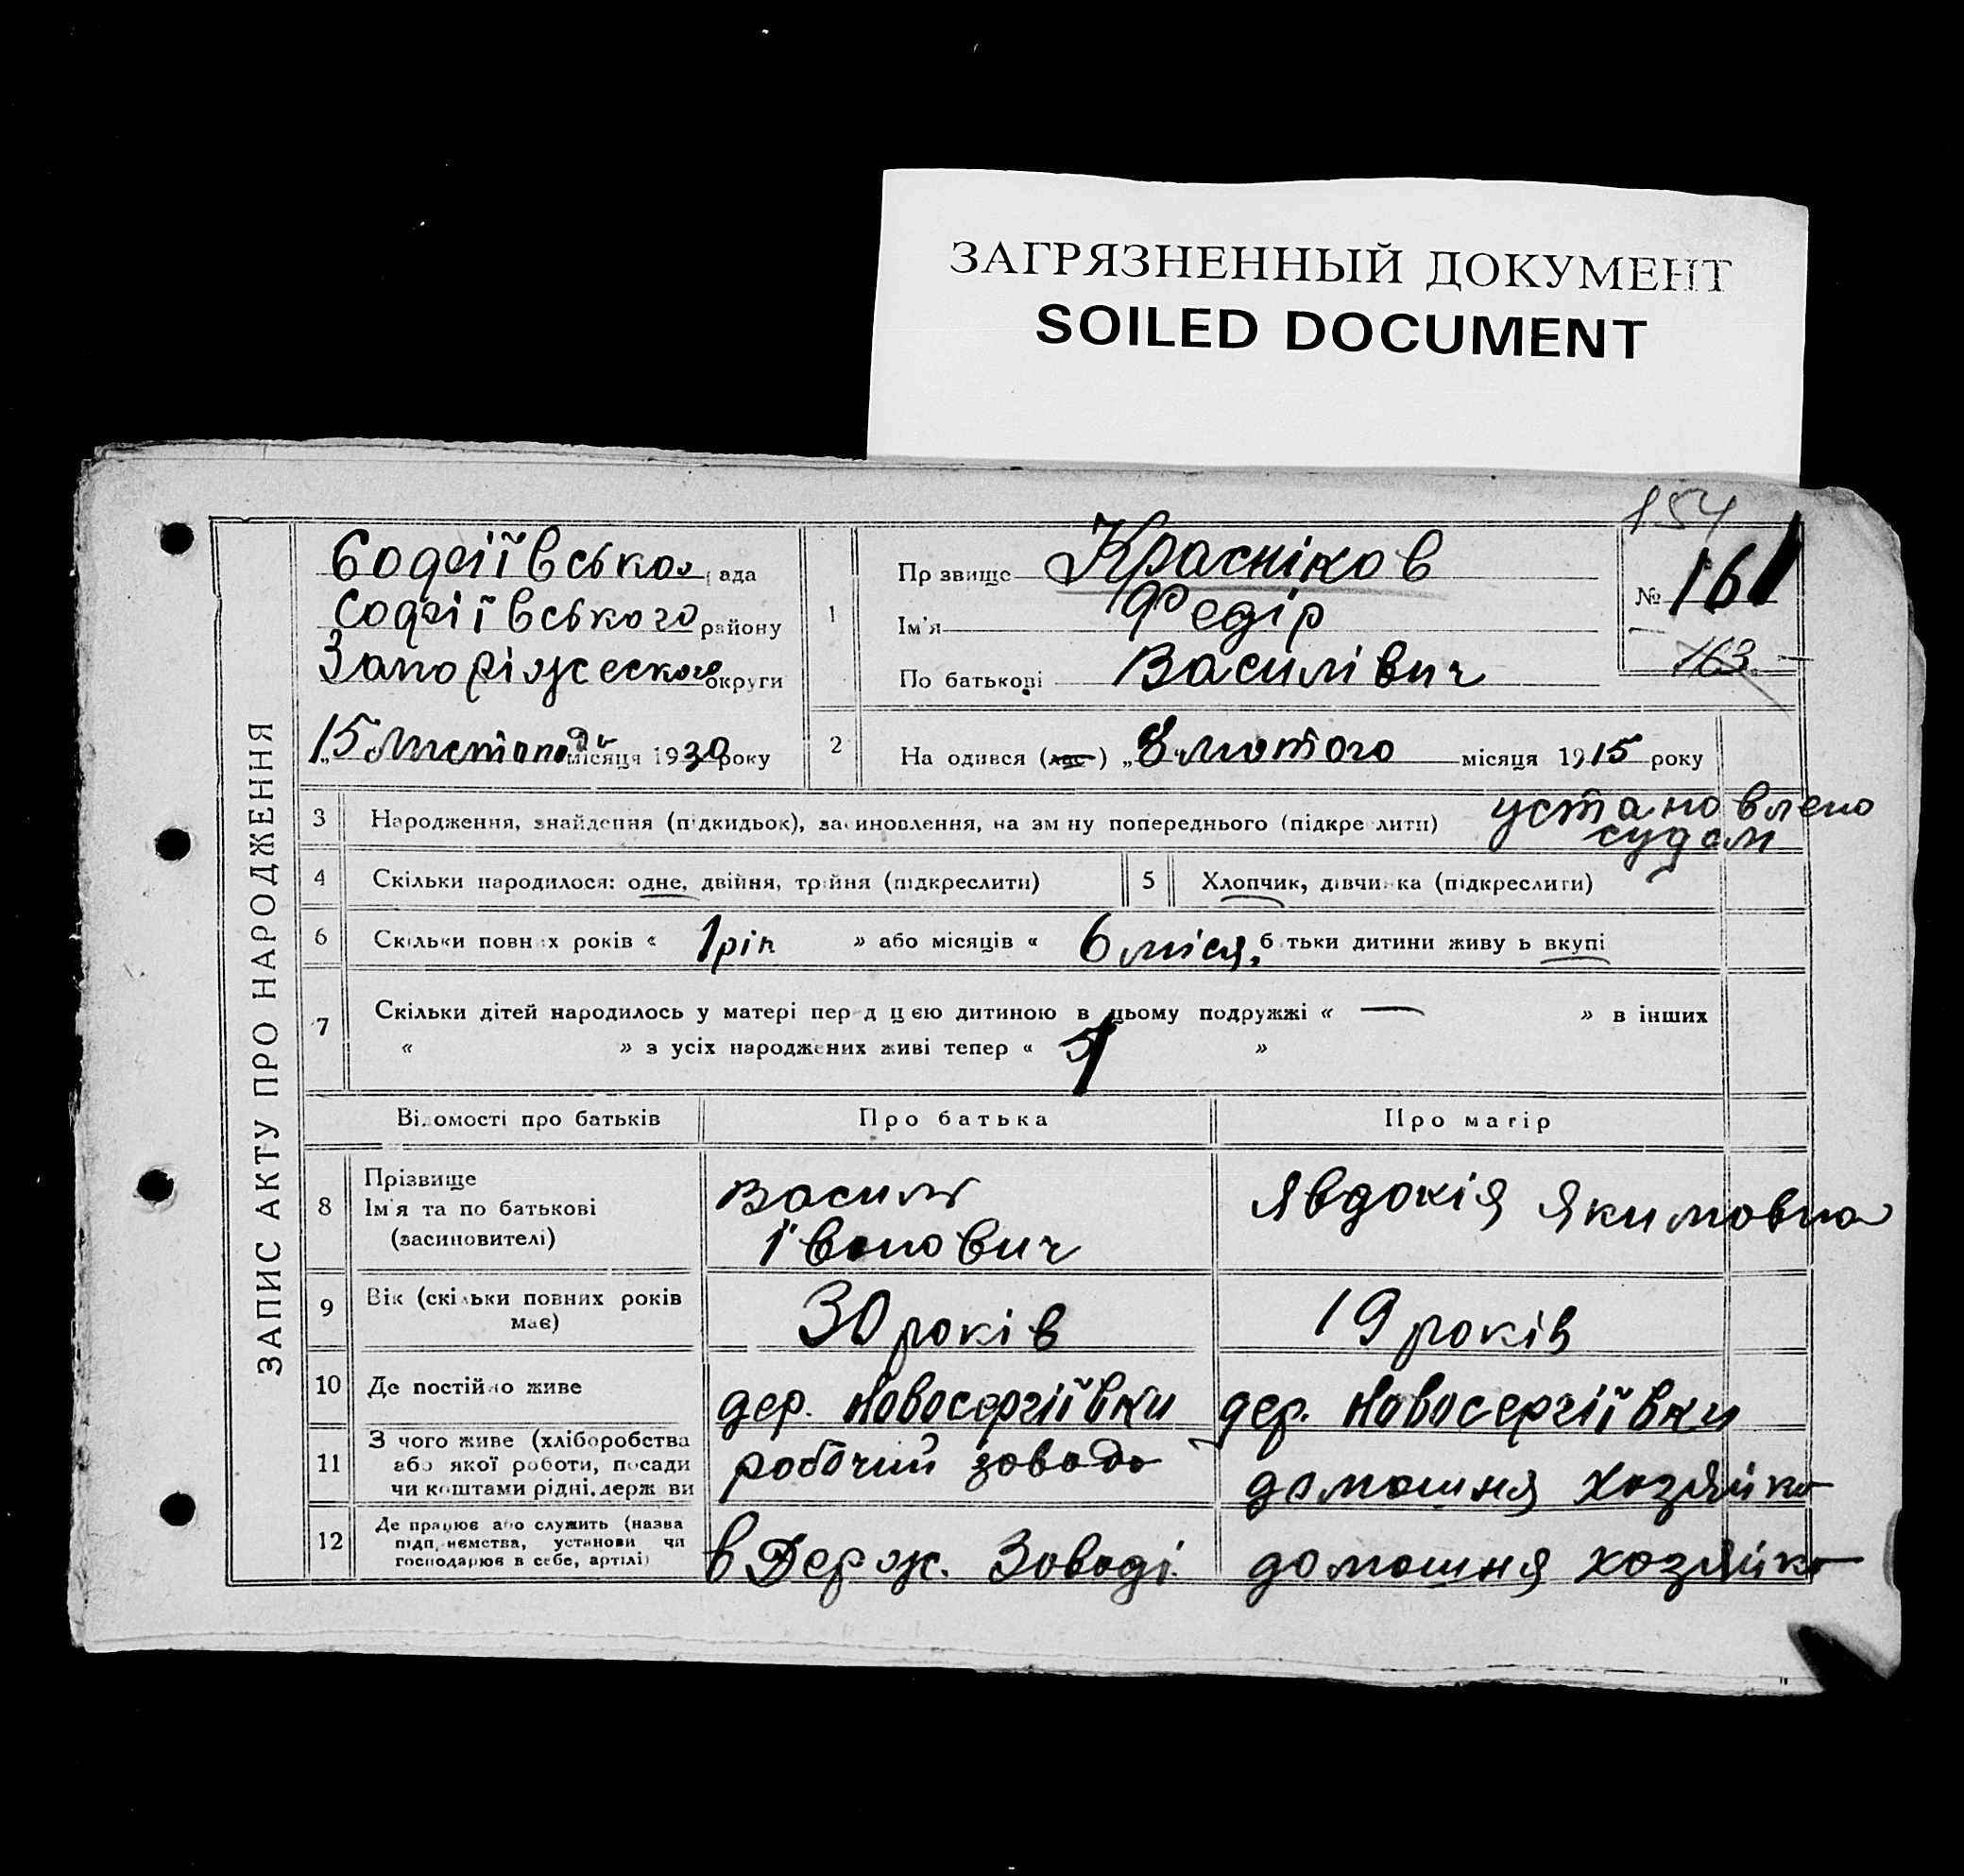 ЗАГРЯЗНЕННЫЙ ДОКУМЕНТ
SOILED DOCUMENT
154
ЗАПИС АКТУ ПРО НАРОДЖЕННЯ
Софіївська рада
Софіївського району
Запоріжеского округи
„15 листопада місяця 1930 року
1 Пр звище Красніков
Ім'я Федір
По батькові Василівич
№ 161
163
2 На одився (лас) „8" лютого місяця 1915 року
3 Народження, знайдення (підкидьок), засиновлення, на зм ну попереднього (підкре лити) установлено
судом
4 Скільки народилося: одне, двійня, трійня (підкреслити) 5 Хлопчик, дівчи ка (підкреслити)
6 Скільки повних років « 1 рік » або місяців « 6 міся, б тьки дитини живу ь вкупі
7 Скільки дітей народилось у матері пер д цією дитиною в цьому подружжі « — » в інших
« » з усіх народжених живі тепер « »
Відомості про батьків Про батька Про матір
8 Прізвище
Ім'я та по батькові
(засиновителі)
Василь
Іванович
Явдокія Якимовна
9 Вік (скільки повних років
має)
30 років 19 років
10 Де постійно живе дер. Новосергіївки дер. Новосергіївки
11 З чого живе (хліборобства
або якої роботи, посади
чи коштами рідні, держ ви
робочий завода домашня хозяйка
12 Де працює або служить (назва
підп иємства, установи чи
господарює в себе, артілі)
в Держ. Заводі. домашня хозяйка